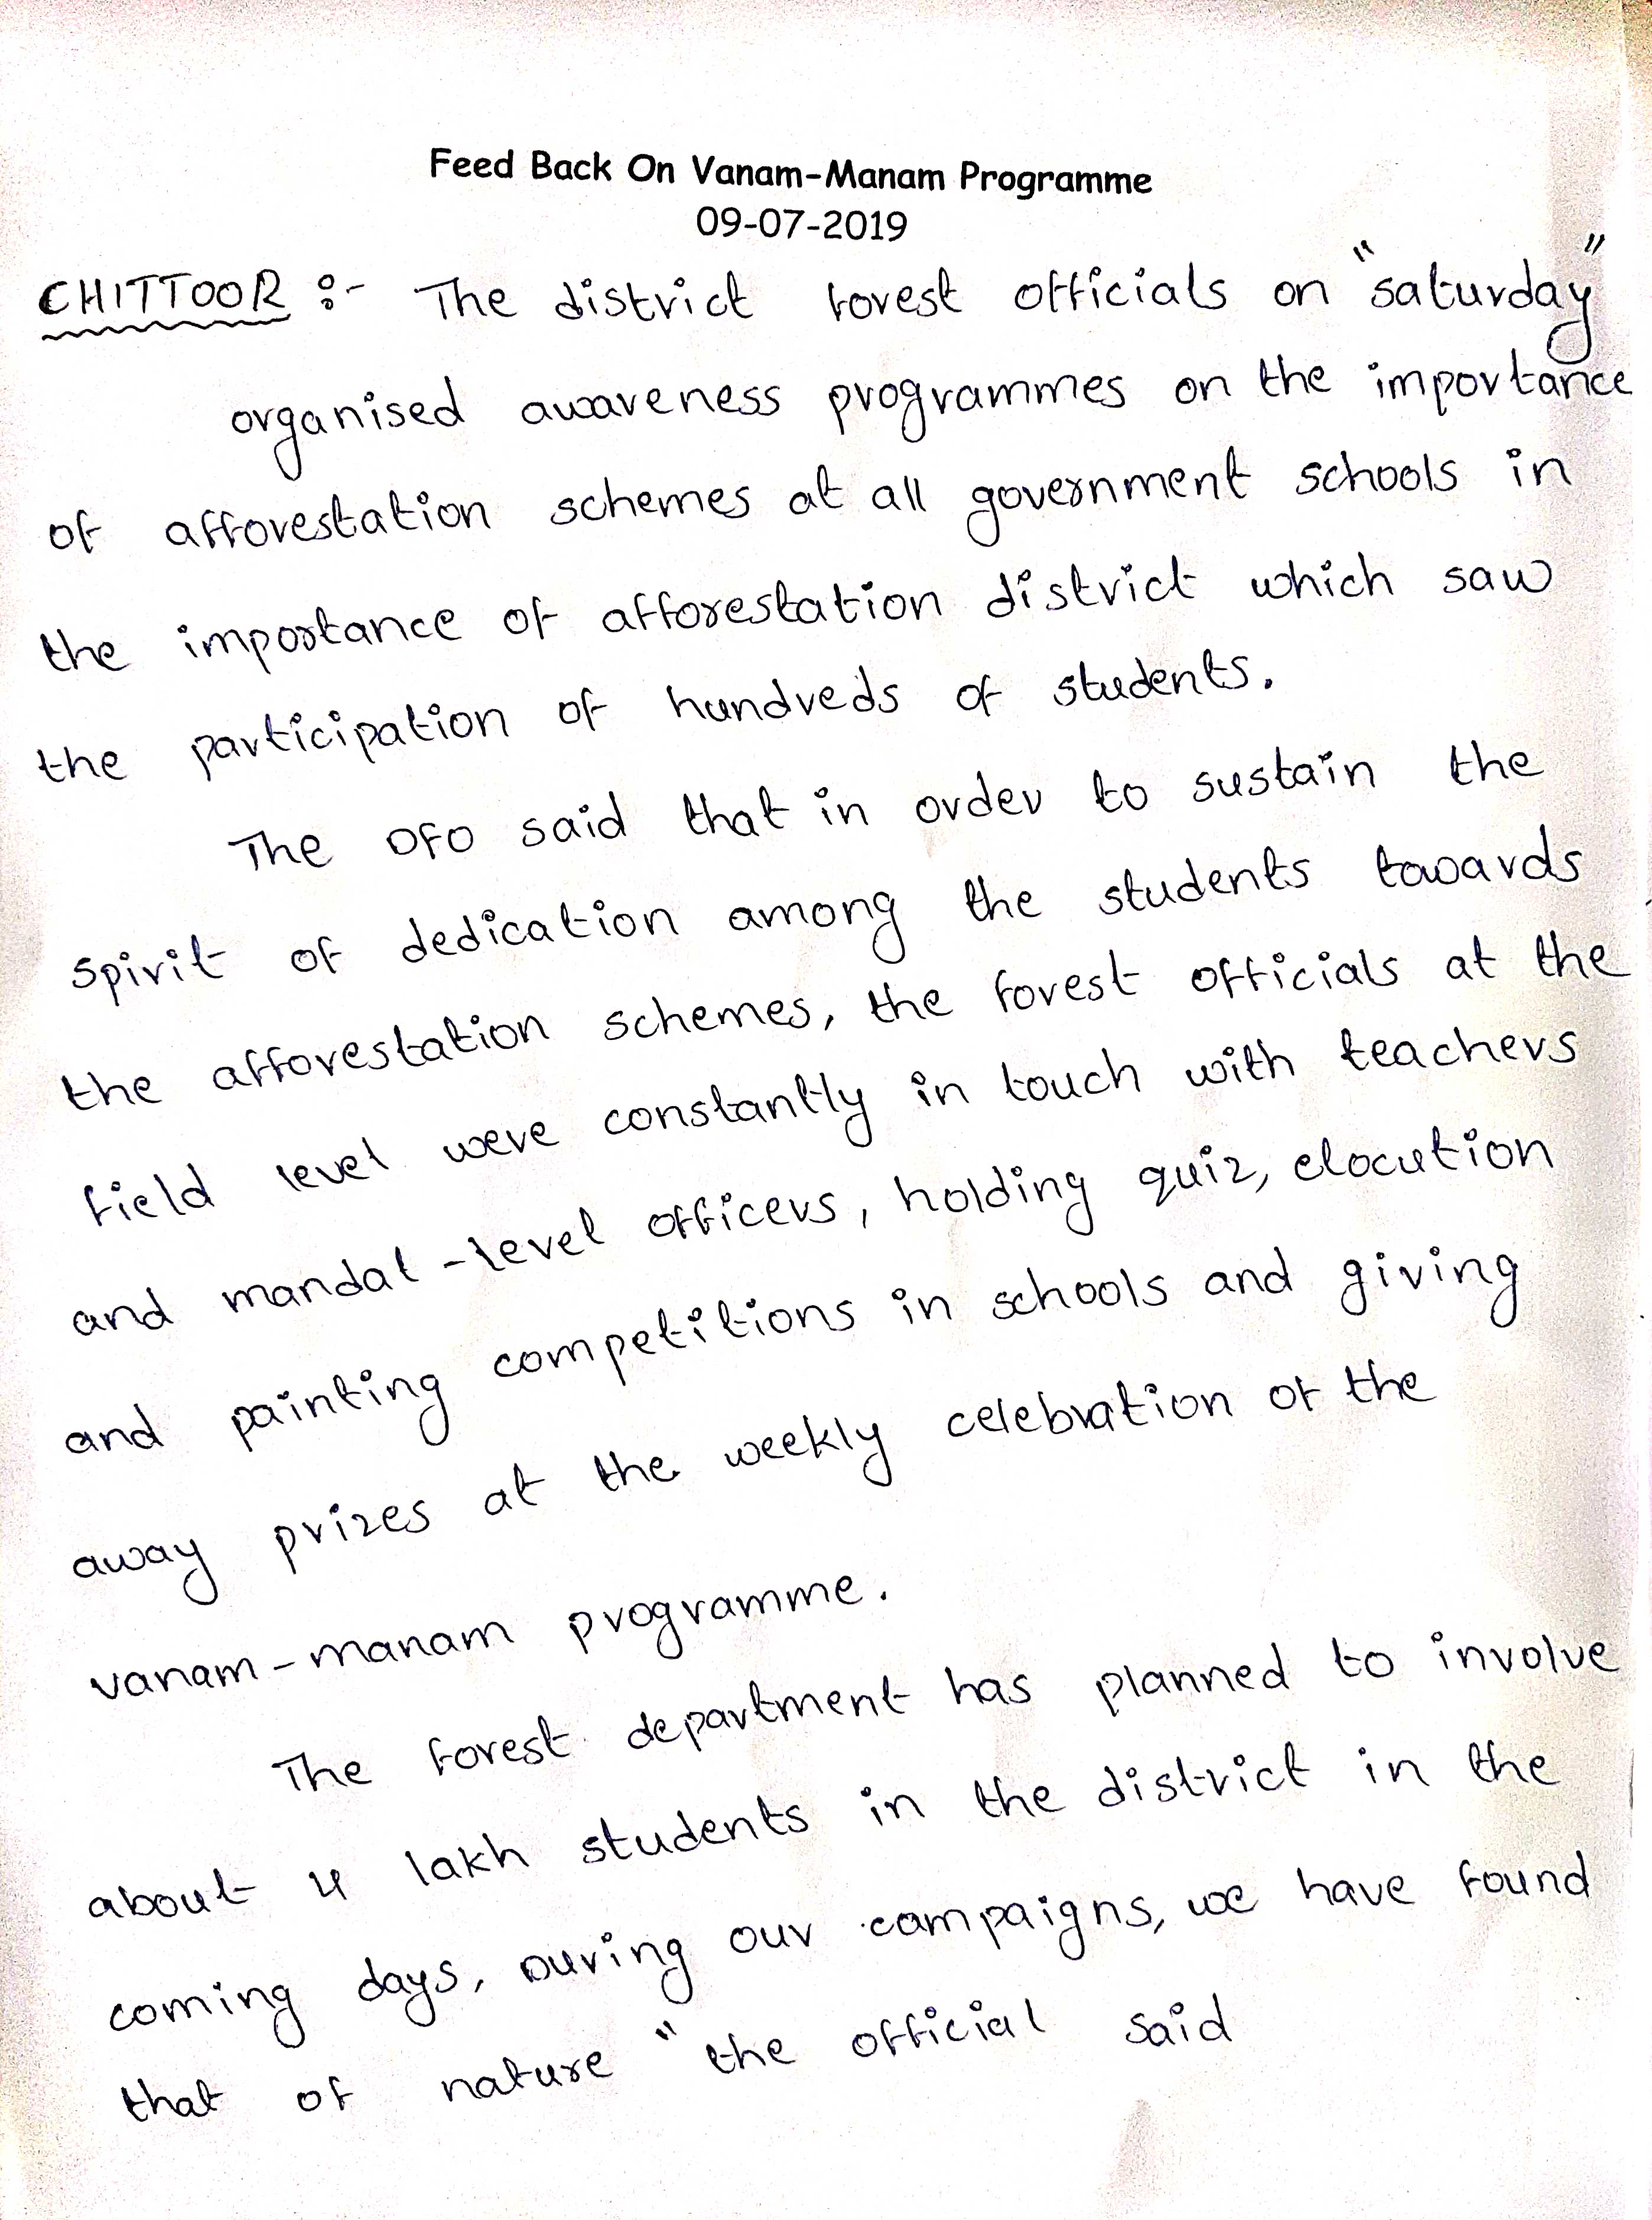 Feed Back On Vanam-Manam Programme
09-07-2019
CHITTOOR :- The district forest officials on "saturday"
organised awareness programmes on the importance
of afforestation schemes at all government schools in
the importance of afforestation district which saw
the participation of hundreds of students.
The DFO said that in order to sustain the
spirit of dedication among the students towards
the afforestation schemes, the forest officials at the
field level were constantly in touch with teachers
and mandal-level officers, holding quiz, elocution
and painting competitions in schools and giving
away prizes at the weekly celebration of the
vanam-manam programme.
The forest department has planned to involve
about 4 lakh students in the district in the
coming days, During our campaigns, we have found
that of nature " the official said